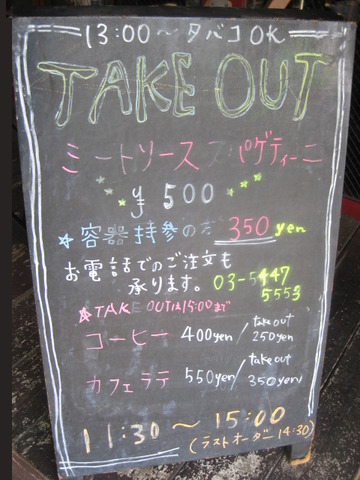 13:00〜タバコOK
TAKE OUT
ミートソーススパゲティーニ
¥500
☆容器持参の方 350yen
お電話でのご注文も
承ります。03-5447
5553
☆TAKE OUTは15:00まで
コーヒー 400yen/take out 250yen
カフェラテ 550yen/take out 350yen
11:30〜15:00
(ラストオーダー14:30)